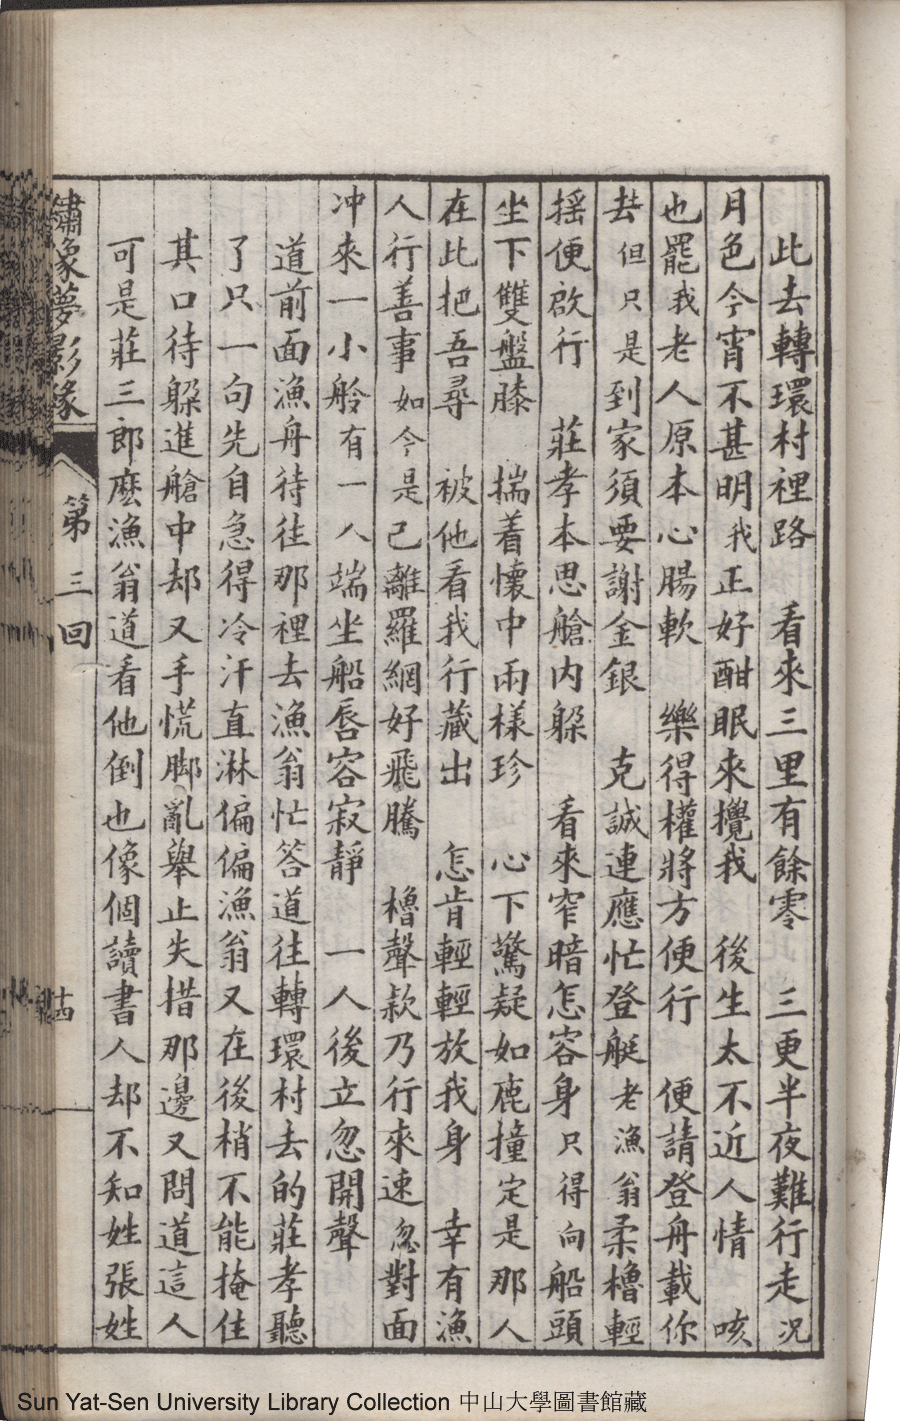 此去轉環村裡路　看來三里有餘零　三更半夜難行走况
月色今宵不甚明我正好酣眠來攪我　後生太不近人情　咳
也罷我老人原本心腸軟　樂得權將方便行　便請登舟載你
去但只是到家須要謝金銀　克誠連應忙登艇老漁翁柔櫓輕
摇便啟行　莊孝本思艙内躲　看來窄暗怎容身只得向船頭
坐下雙盤膝　揣着懷中兩樣珍　心下驚疑如鹿撞定是那人
在此把吾尋　被他看我行藏出　怎肯輕輕放我身　幸有漁
人行善事如今是已離羅網好飛騰　櫓聲欸乃行來速忽對面
冲來一小舲有一人端坐船唇容寂靜　一人後立忽開聲
道前面漁舟待往那裡去漁翁忙答道往轉環村去的莊孝聽
了只一句先自急得冷汗直淋偏偏漁翁又在後梢不能掩住
其口待躲進艙中却又手慌脚亂舉止失措那邊又問道這人
可是莊三郎麽漁翁道看他倒也像個讀書人却不知姓張姓
繡像夢影緣
第三回
十四
Sun Yat-Sen University Library Collection 中山大學圖書館藏